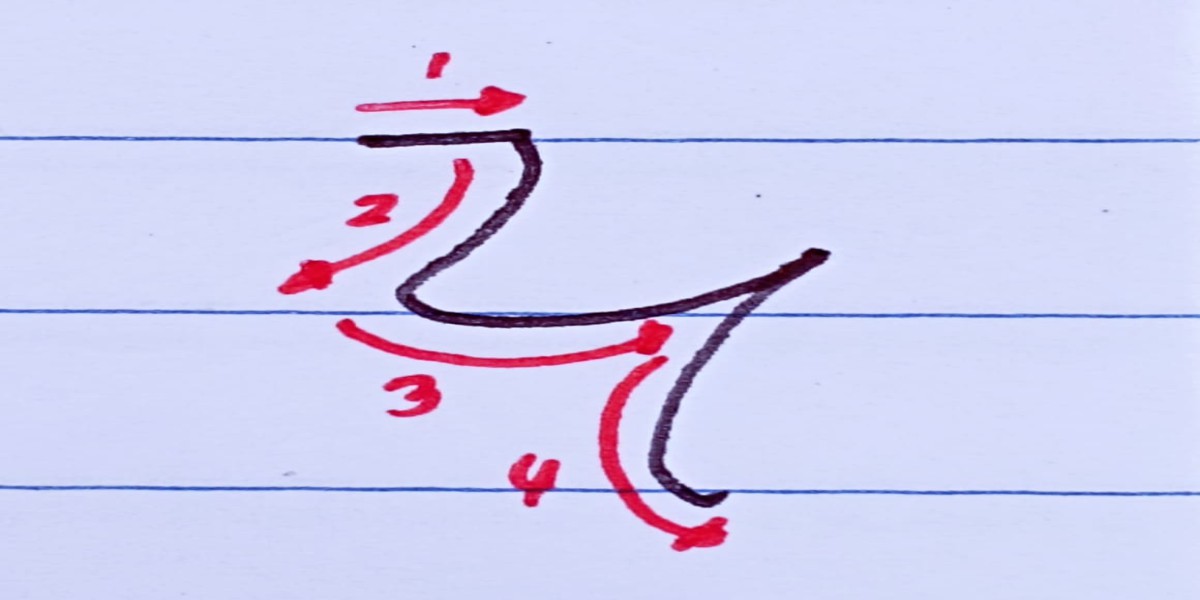 1
2
ན
3
4